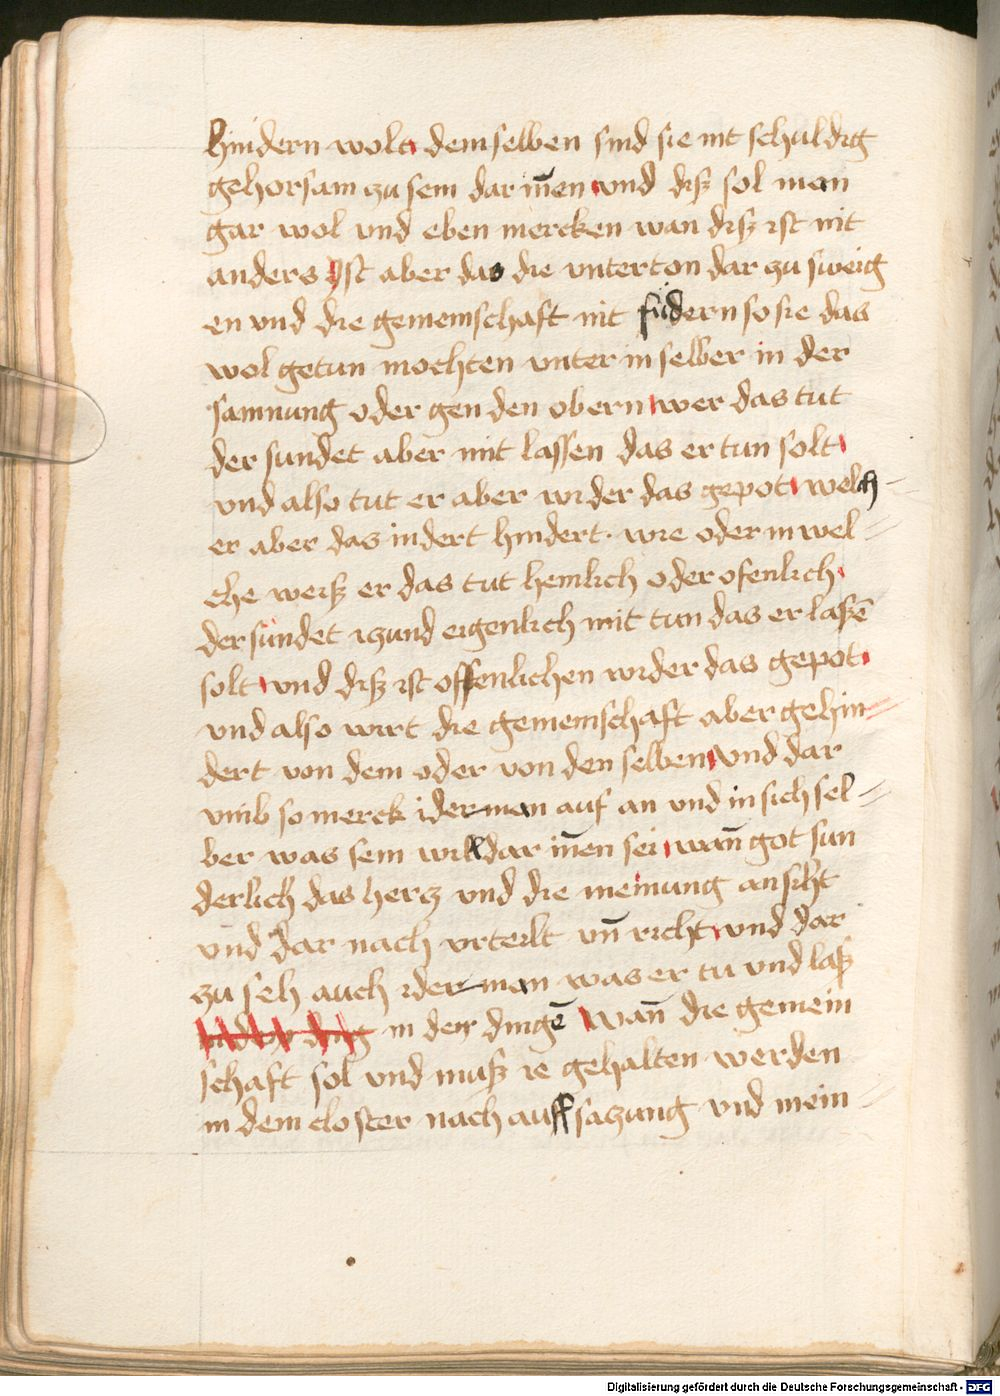 hindern wolt demselben sind sie nit schuldig
gehorsam zu sein dar iñen vnd disz sol man
gar wol vnd eben mercken wan disz ist nit
anders Jst aber das die vnterton dar zu sweig
en vnd die gemeinschaft nit fudern so sie das
wol getun mochten vnter in selber in der
samnung oder gen den obern wer das tut
der sundet aber mit lassen das er tun solt
vnd also tut er aber wider das gepot welch
er aber das indert hindert. wie oder in wel=
che weisz er das tut heimlich oder ofenlich
der sundet yzund eigenlich mit tun das er laszē
solt vnd disz ist offenlichen wider das gepot
vnd also wirt die gemeinschaft aber gehin=
dert von dem oder von den selben vnd dar
vmb so merck iderman auf an vnd in sich sel=
ber was sein will dar iñen sei wañ got sun
derlich das herz vnd die meinung ansiht
vnd dar nach vrteilt vñ richt vnd dar
zu seh auch iderman was er tu vnd lasz
in den dingē wañ die gemein
schaft sol vnd musz ie gehalten werden
in dem closter nach auffsazung vnd mein=
Digitalisierung gefördert durch die Deutsche Forschungsgemeinschaft - DFG